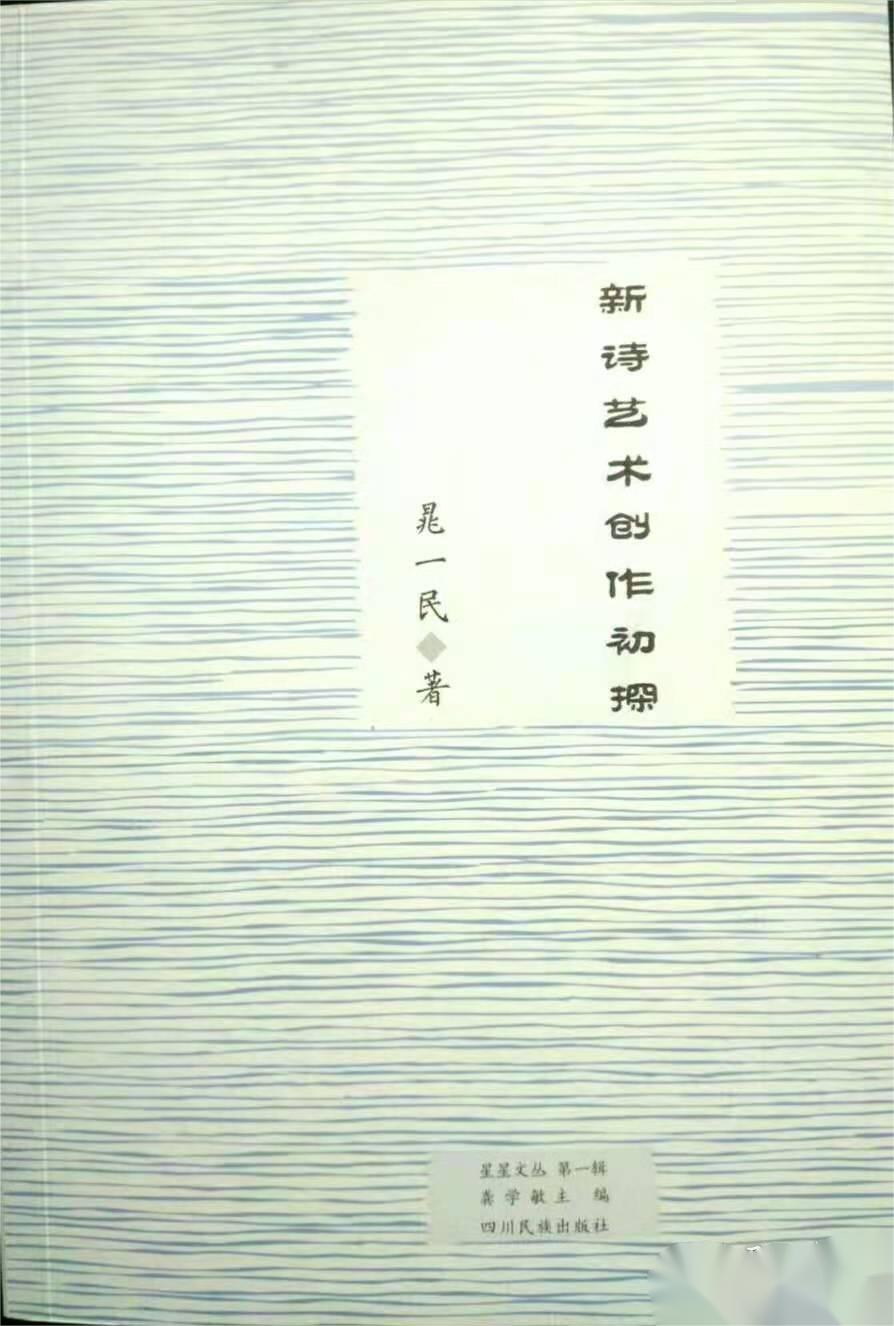 新诗艺术创作初探
晁一民◆著
星星文丛 第一辑
龚学敏主 编
四川民族出版社